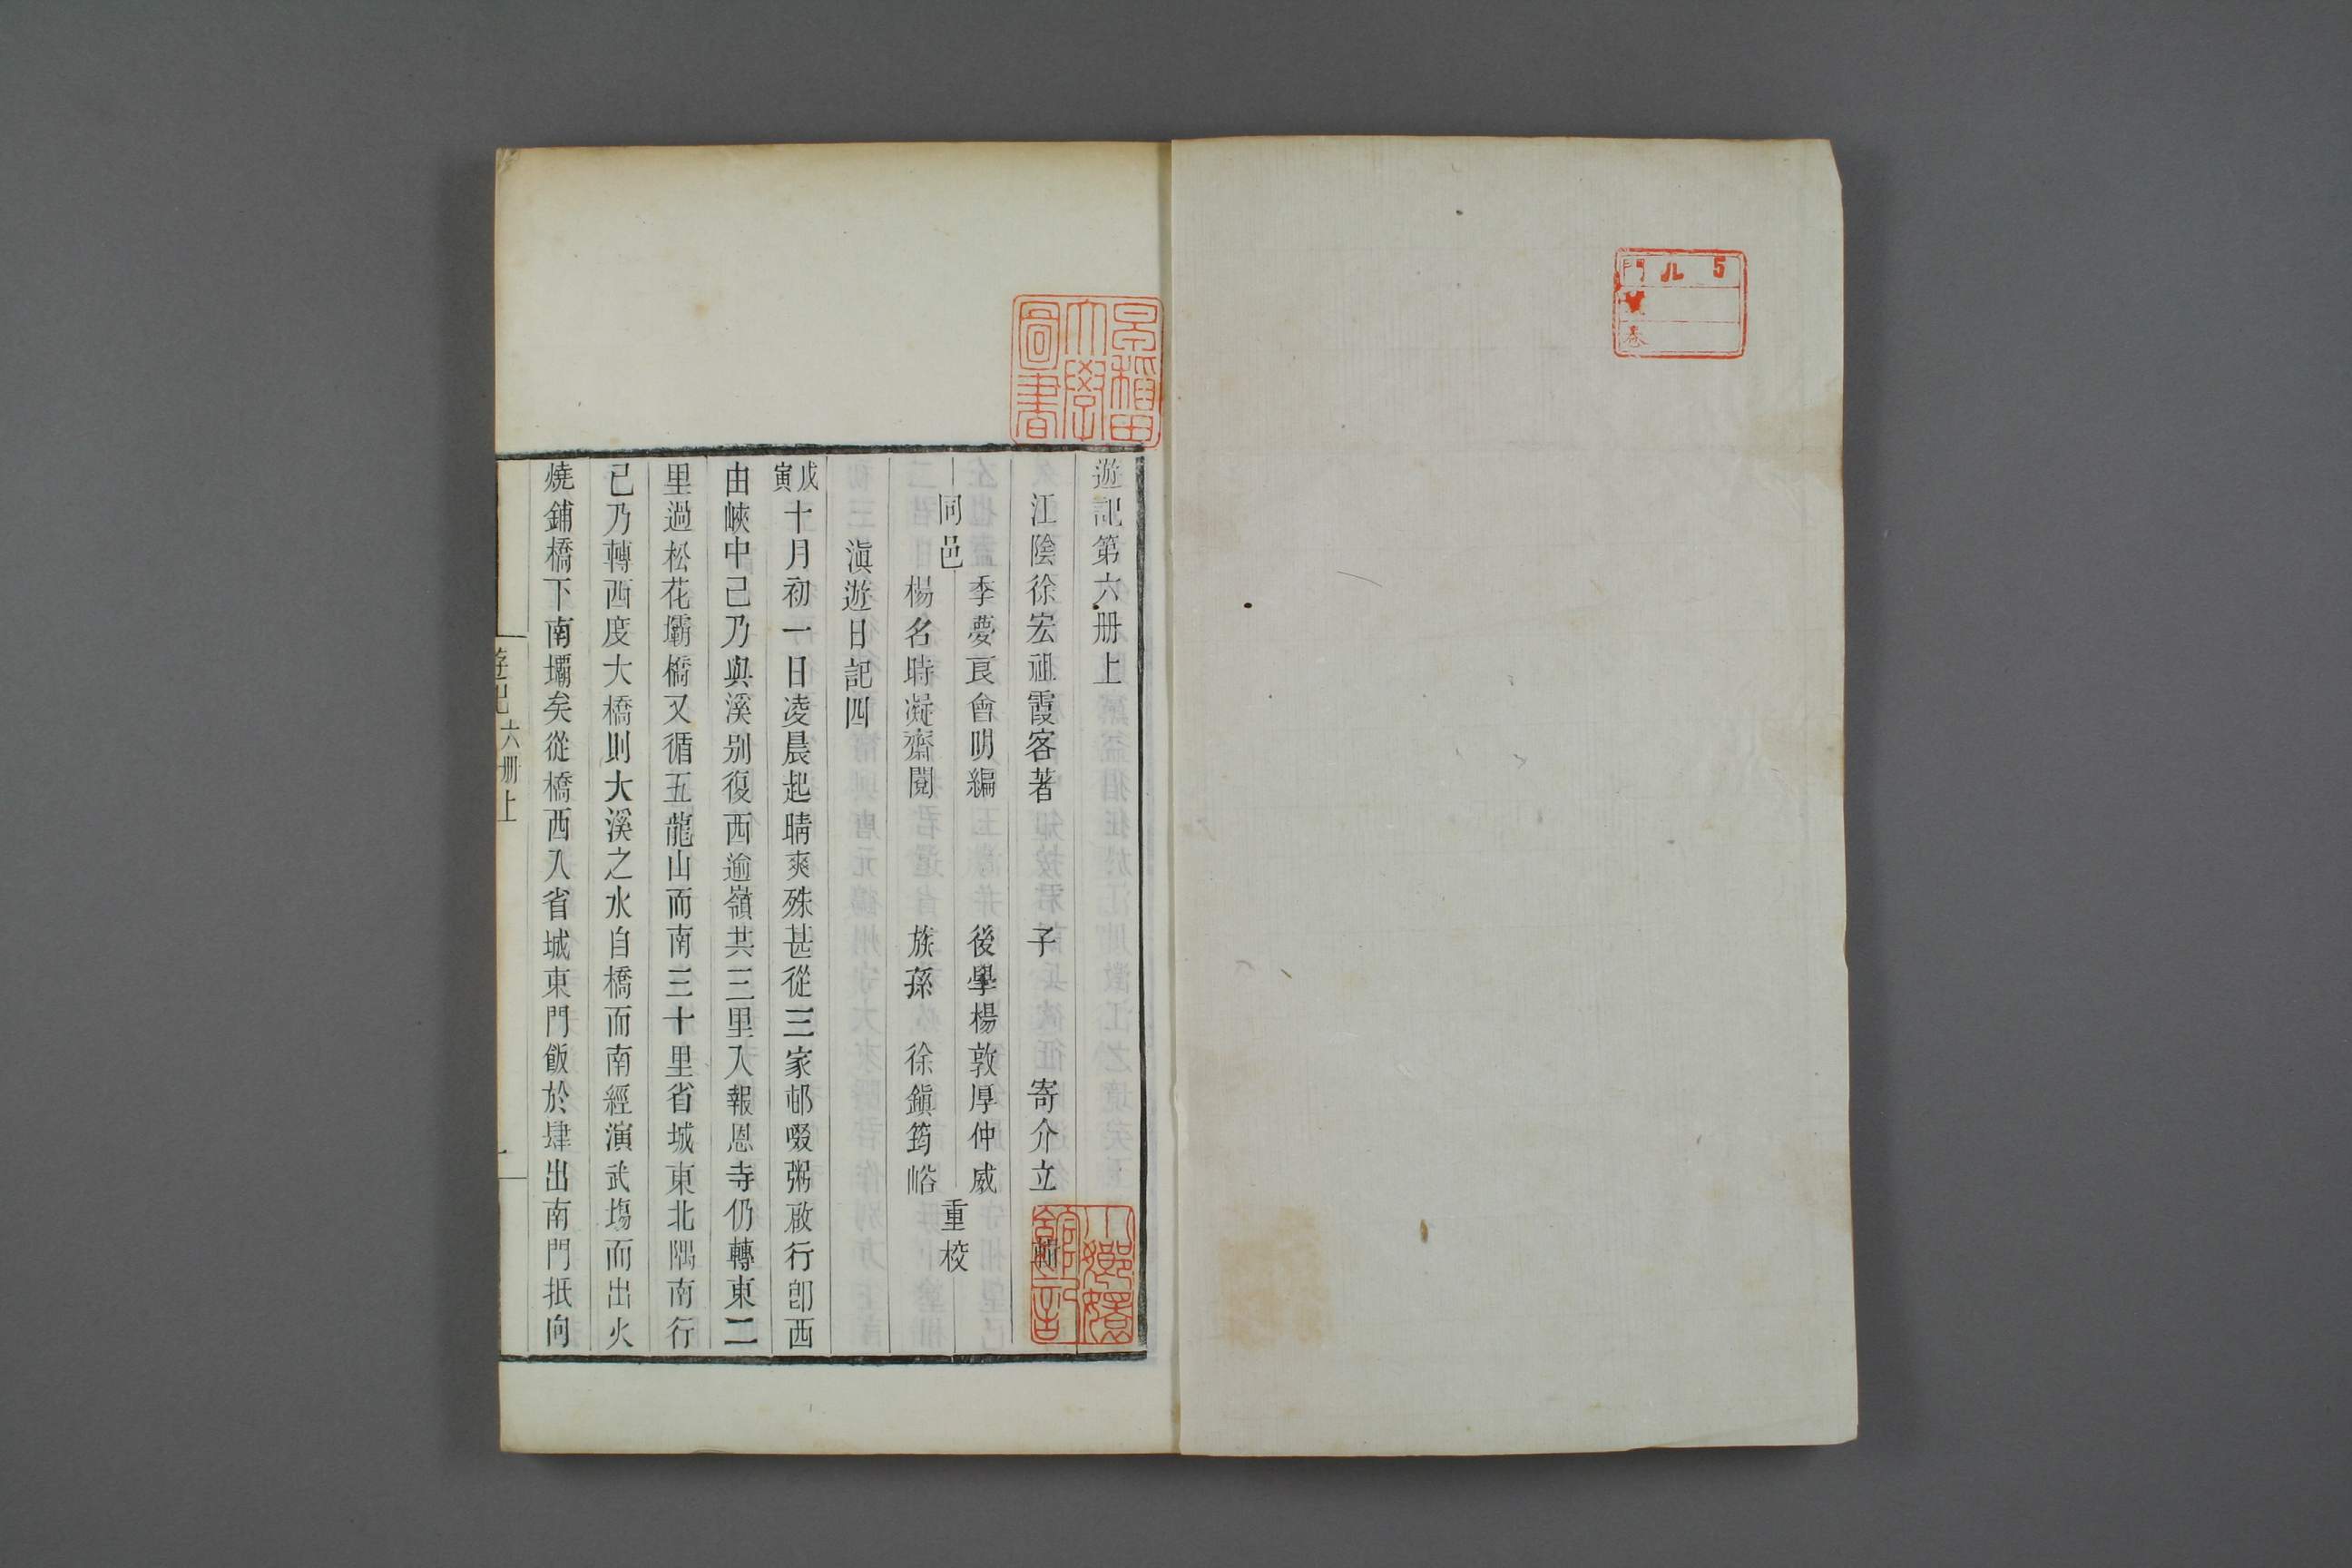 門 ル 5
號
卷
早稻田大學圖書
遊記第六册上
江陰徐宏祖霞客著 子 寄介立 輯
同邑
季夢良會明編 後學楊敦厚仲威
楊名時凝齋閱 族孫 徐鎮筠峪
重校
滇遊日記四
戊寅十月初一日凌晨起晴爽殊甚從三家邨啜粥啟行卽西
由峽中己乃與溪別復西逾嶺共三里入報恩寺仍轉東二
里過松花壩橋又循五龍山而南三十里省城東北隅南行
已乃轉西度大橋則大溪之水自橋而南經演武塲而出火
燒鋪橋下南壩矣從橋西入省城東門飯於肆出南門抵向
六册上